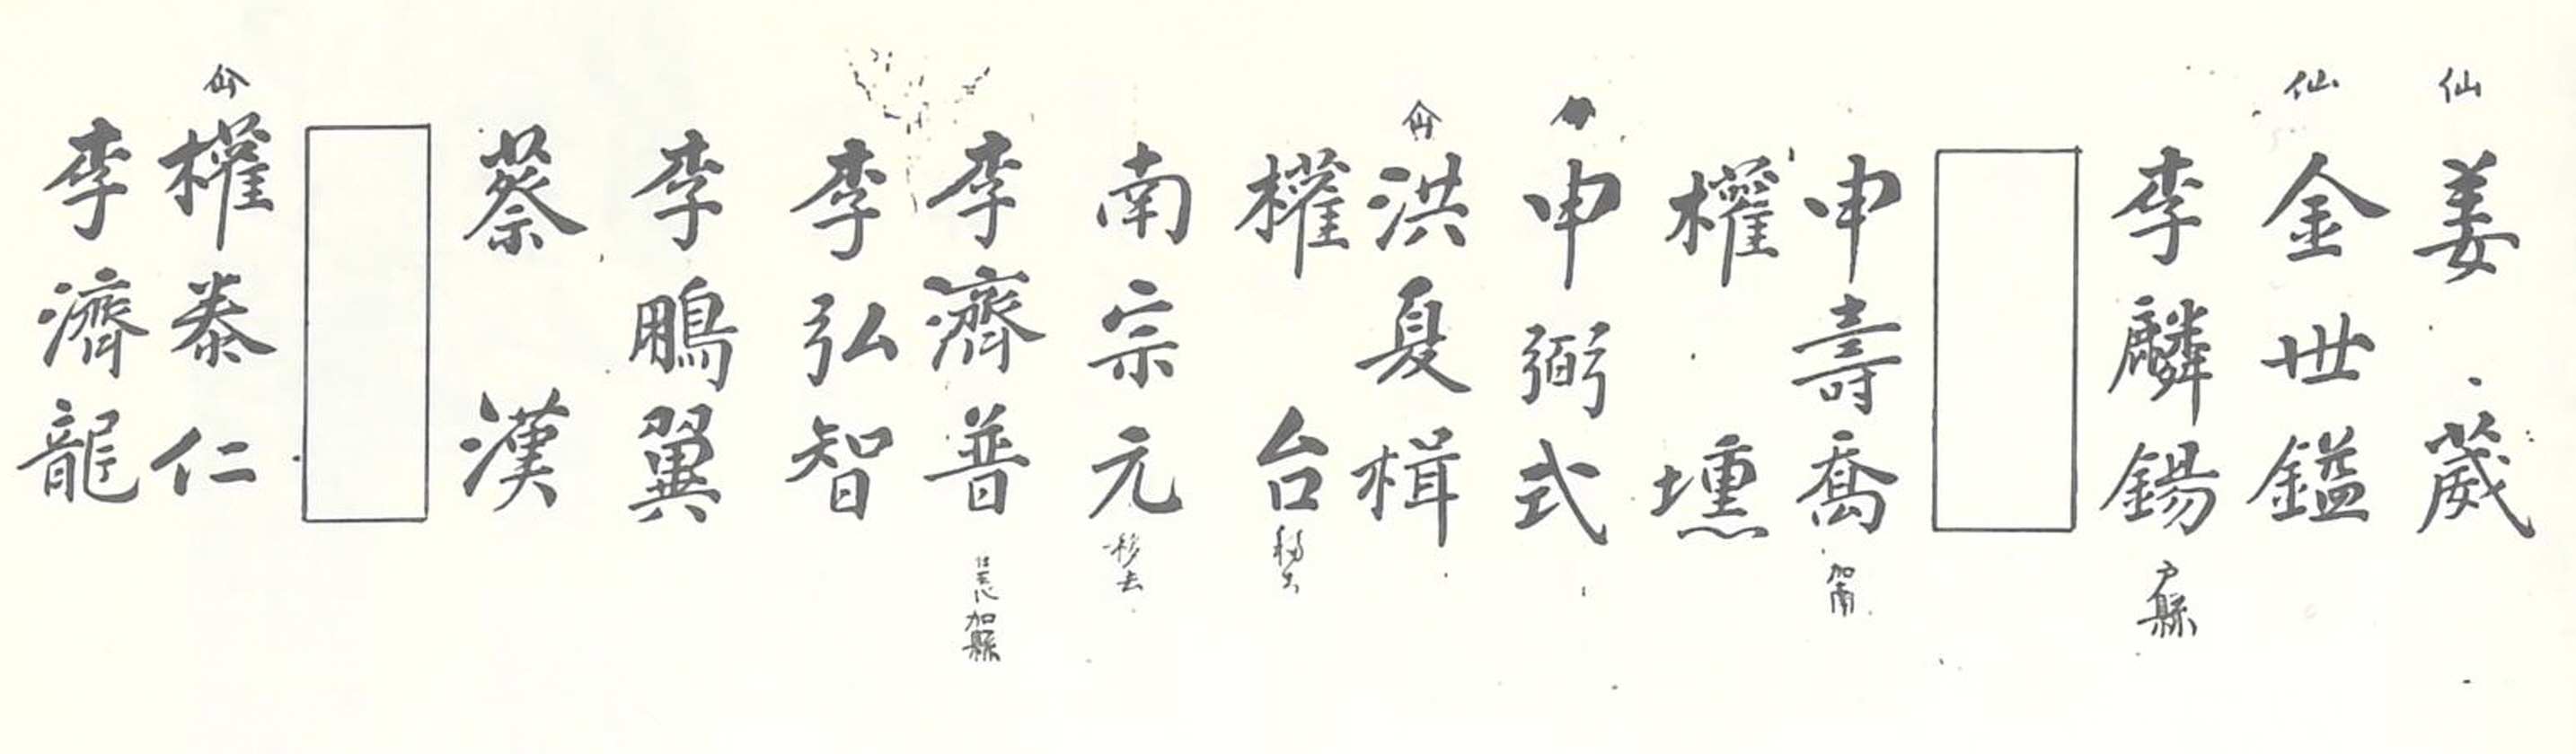 仙 姜葳
仙 金世鎰
李麟錫 戶縣
申壽喬 加南
權壎
申弼式
仚 洪夏楫
權台 移去
南宗元 移去
李濟普 加縣
李弘智
李鵬翼
蔡漢
仚 權泰仁
李濟龍